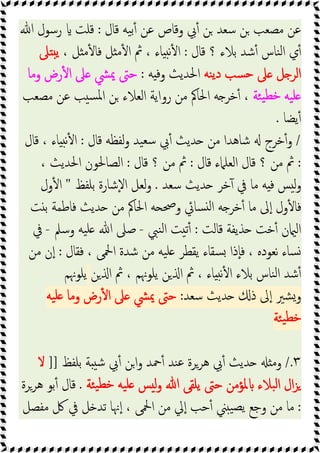 عن مصعب بن سعد بن أبي وقاص عن أبيه قال : قلت يا رسول الله
أي الناس أشد بلاء ؟ قال : الأنبياء ، ثم الأمثل فالأمثل ، يبتلى
الرجل على حسب دينه الحديث وفيه : حتى يمشي على الأرض وما
عليه خطيئة ، أخرجه الحاكم من رواية العلاء بن المسيب عن مصعب
أيضا .
/ وأخرج له شاهدا من حديث أبي سعيد ولفظه قال : الأنبياء ، قال
: ثم من ؟ قال العلماء قال : ثم من ؟ قال : الصالحون الحديث ،
وليس فيه ما في آخر حديث سعد . ولعل الإشارة بلفظ " الأول
فالأول إلى ما أخرجه النسائي وصححه الحاكم من حديث فاطمة بنت
اليمان أخت حذيفة قالت : أتيت النبي - صلى الله عليه وسلم - في
نساء نعوده ، فإذا بسقاء يقطر عليه من شدة الحمى ، فقال : إن من
أشد الناس بلاء الأنبياء ، ثم الذين يلونهم ، ثم الذين يلونهم
ويشير إلى ذلك حديث سعد: حتى يمشي على الأرض وما عليه
خطيئة
٣./ ومثله حديث أبي هريرة عند أحمد وابن أبي شيبة بلفظ [[ لا
يزال البلاء بالمؤمن حتى يلقى الله وليس عليه خطيئة . قال أبو هريرة
: ما من وجع يصيبني أحب إلي من الحمى ، إنها تدخل في كل مفصل